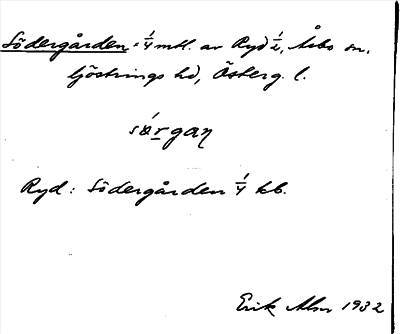 Södergården = 1/4 mtl. av Ryd 1/2, Åsbo sn,
Göstrings hd, Österg. l.
Ryd: Södergården 1/4 kb.
Erik Alm 1932